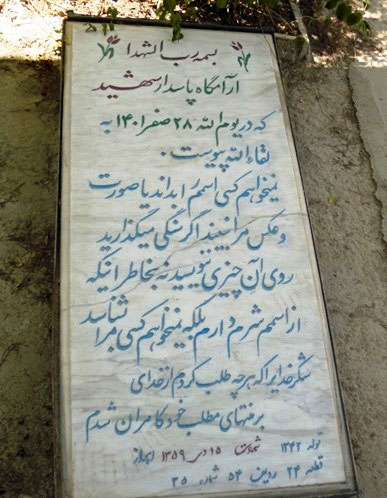 بسم رب الشهدا
آرامگاه پاسدار شهید
که در یوم الله ۲۸ صفر ۱۴۰۱ به
لقاء الله پیوست.
نمیخواهم کسی اسمم را بداند یا صورت
و عکس مرا ببیند اگر سنگی میگذارید
روی آن چیزی ننویسید نه بخاطر اینکه
از اسمم شرم دارم بلکه نمیخواهم کسی مرا بشناسد
شکر خدا را که هر چه طلب کردم از خدای
بر منتهای مطلب خود کامران شدم
تولد ۱۳۴۲ شهادت ۱۵ دی ۱۳۵۹ اهواز
قطعه ۲۴ ردیف ۵۴ شماره ۳۵